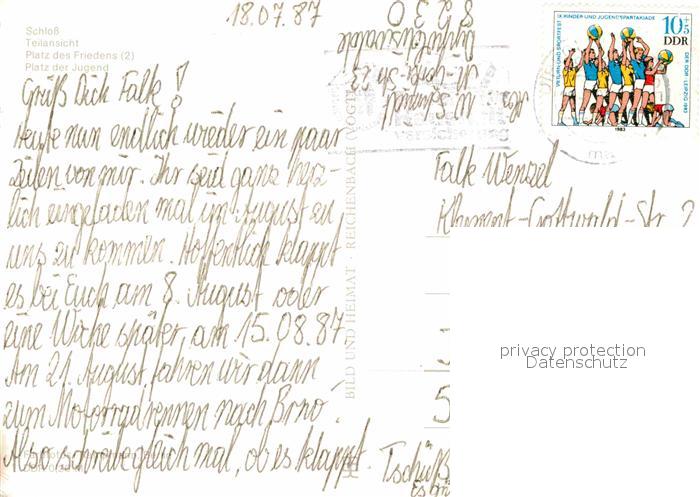 18.07.87
Schloß
Teilansicht
Platz des Friedens (2)
Platz der Jugend
Grüß Dich Falke!
Heute nun endlich wieder ein paar
Zeilen von mir. Ihr seid ganz herz-
lich eingeladen mal im August zu
uns zu kommen. Hoffentlich klappt
es bei Euch am 8. August oder
eine Woche später, am 15.08.87
Am 21. August fahren wir dann
zum Motorradrennen nach Brno!
Also schreibe gleich mal, ob es klappt. Tschüß
BILD UND HEIMAT · REICHENBACH (VOGTL
8230
IX. KINDER UND JUGENDSPARTAKIADE
VII. TURN UND SPORTFEST
DER DDR · LEIPZIG 1983
10+5
DDR
1983
Falk Wenzel
Klement-Gottwald-Str. 2
5
privacy protection
Datenschutz